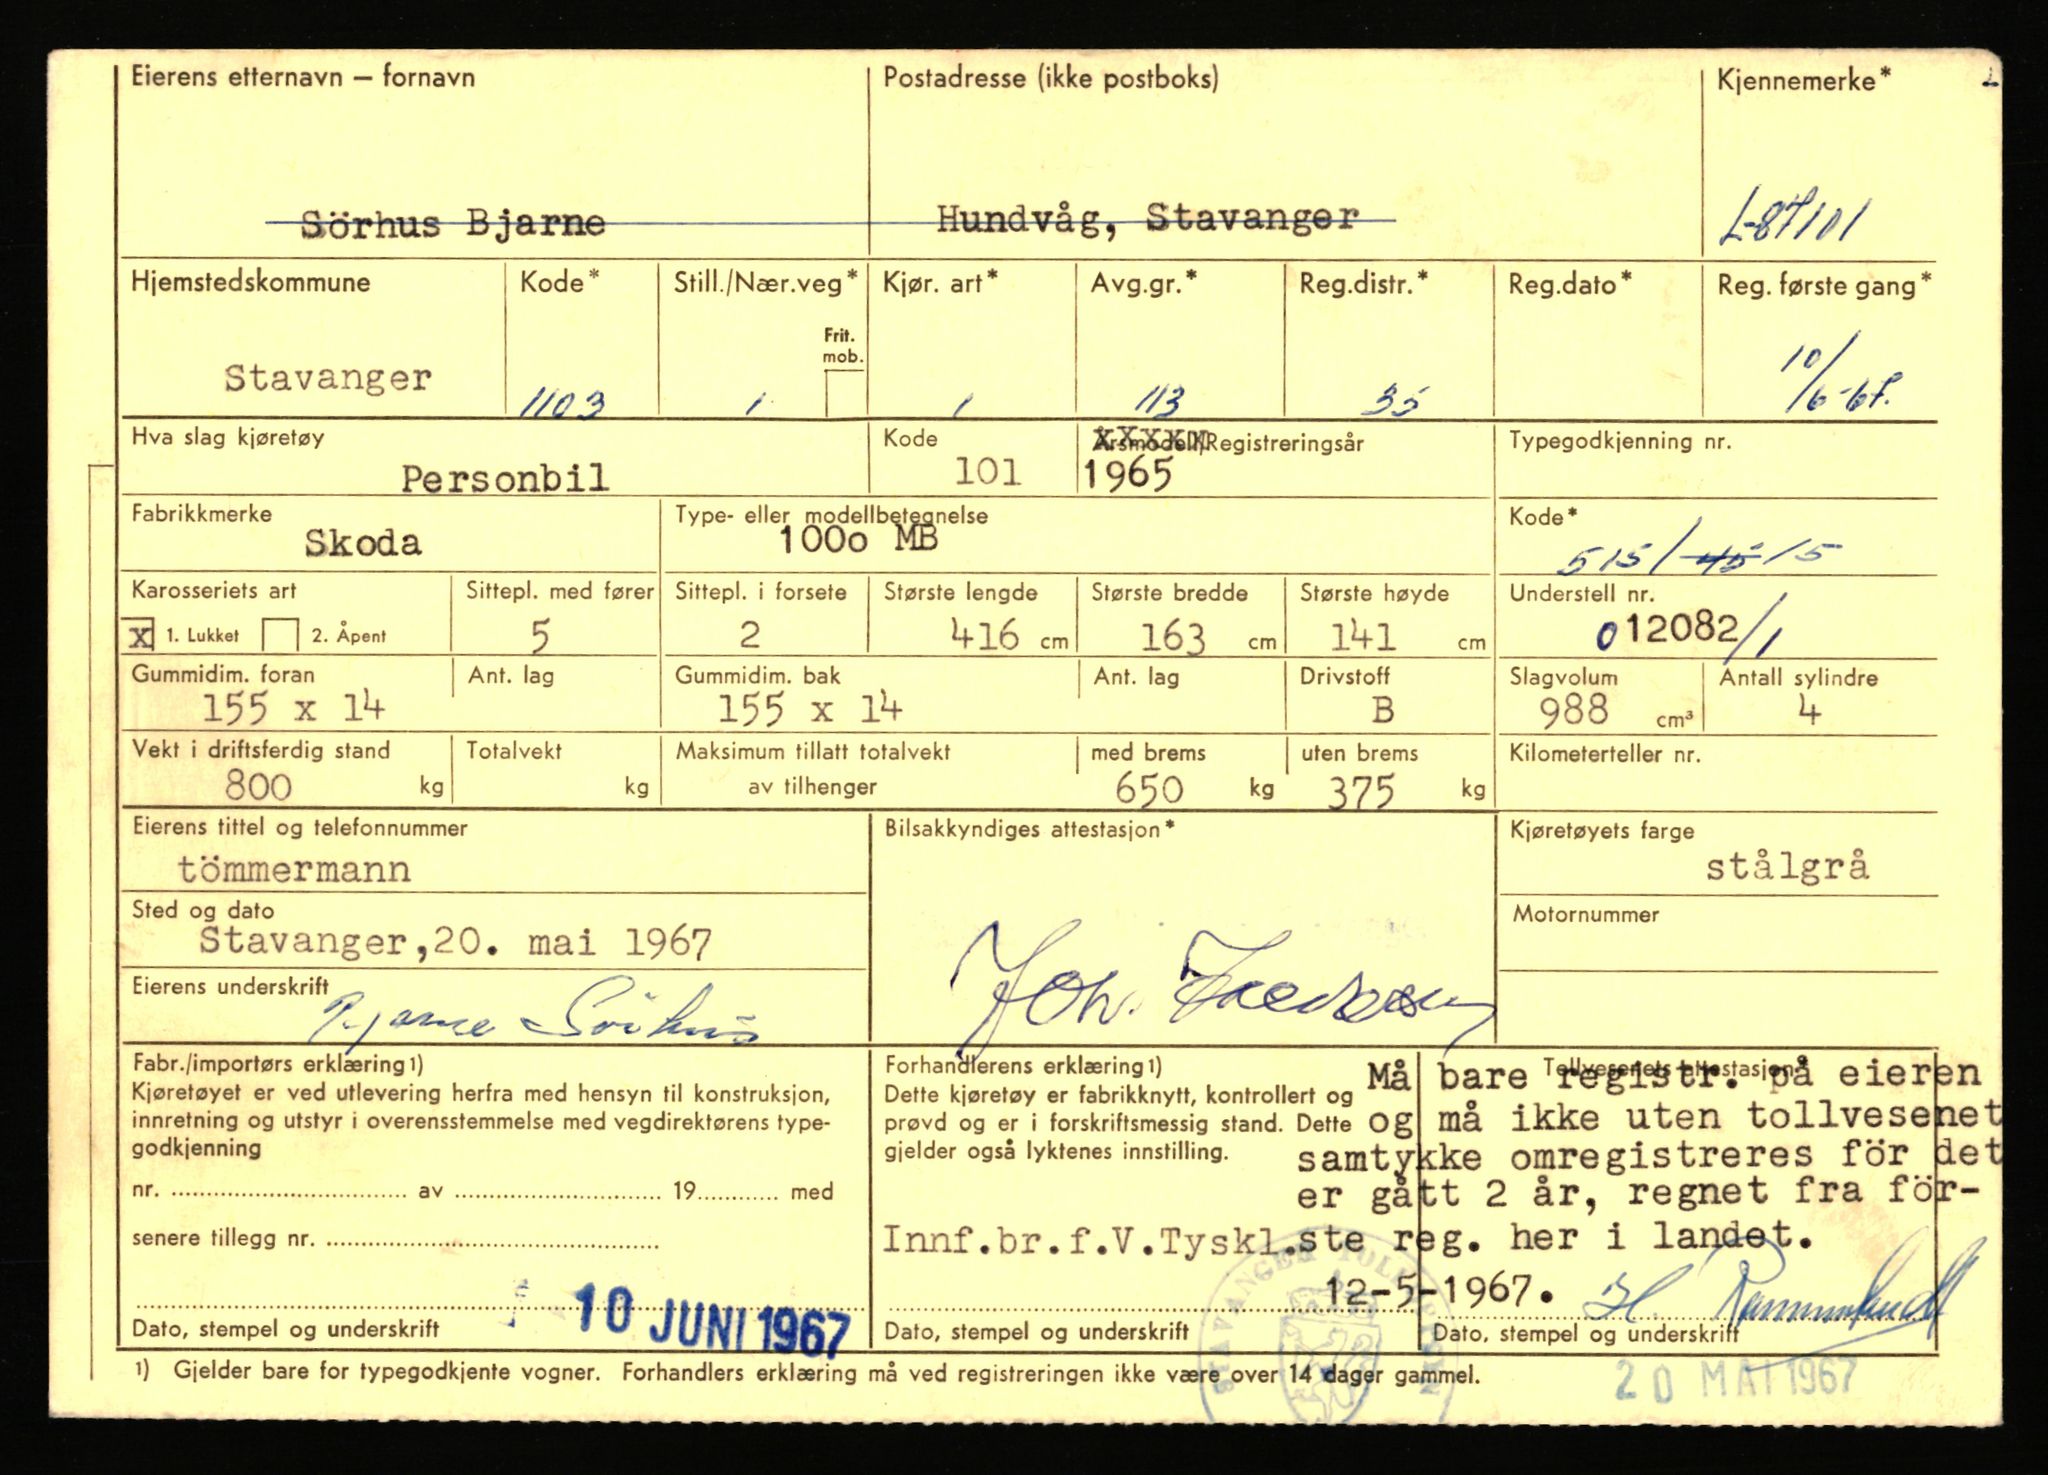 Eierens etternavn — fornavn Postadresse (ikke postboks) Kjennemerke*
Sörhus Bjarne Hundvåg, Stavanger L-87101
Hjemstedskommune Kode* Still./Nær.veg* Kjør. art* Avg.gr.* Reg.distr.* Reg.dato* Reg. første gang*
Frit.
mob.
Stavanger 1103 1 1 113 35 10/6-67.
Hva slag kjøretøy Kode Årsmodell/Registreringsår Typegodkjenning nr.
Personbil 101 1965
Fabrikkmerke Type- eller modellbetegnelse Kode*
Skoda 100o MB 515/45 15
Karosseriets art Sittepl. med fører Sittepl. i forsete Største lengde Største bredde Største høyde Understell nr.
X 1. Lukket 2. Åpent 5 2 416 cm 163 cm 141 cm 012082/1
Gummidim. foran Ant. lag Gummidim. bak Ant. lag Drivstoff Slagvolum Antall sylindre
155 x 14 155 x 14 B 988 cm³ 4
Vekt i driftsferdig stand Totalvekt Maksimum tillatt totalvekt med brems uten brems Kilometerteller nr.
800 kg kg av tilhenger 650 kg 375 kg
Eierens tittel og telefonnummer Bilsakkyndiges attestasjon* Kjøretøyets farge
tömmermann stålgrå
Sted og dato Motornummer
Stavanger,20. mai 1967
Eierens underskrift Bjarne Sörhus
Fabr./importørs erklæring1) Forhandlerens erklæring1) Tollvesenets attestasjon
Kjøretøyet er ved utlevering herfra med hensyn til konstruksjon,
innretning og utstyr i overensstemmelse med vegdirektørens type-
godkjenning
nr. av 19 med
senere tillegg nr.
Dette kjøretøy er fabrikknytt, kontrollert og
prøvd og er i forskriftsmessig stand. Dette
gjelder også lyktenes innstilling.
Må bare registr. på eieren
og må ikke uten tollvesenet
samtykke omregistreres för det
er gått 2 år, regnet fra för-
Innf.br.f.V.Tyskl.ste reg. her i landet.
12-5-1967.
10 JUNI 1967
Dato, stempel og underskrift Dato, stempel og underskrift Dato, stempel og underskrift
1) Gjelder bare for typegodkjente vogner. Forhandlers erklæring må ved registreringen ikke være over 14 dager gammel.
20 MAI 1967